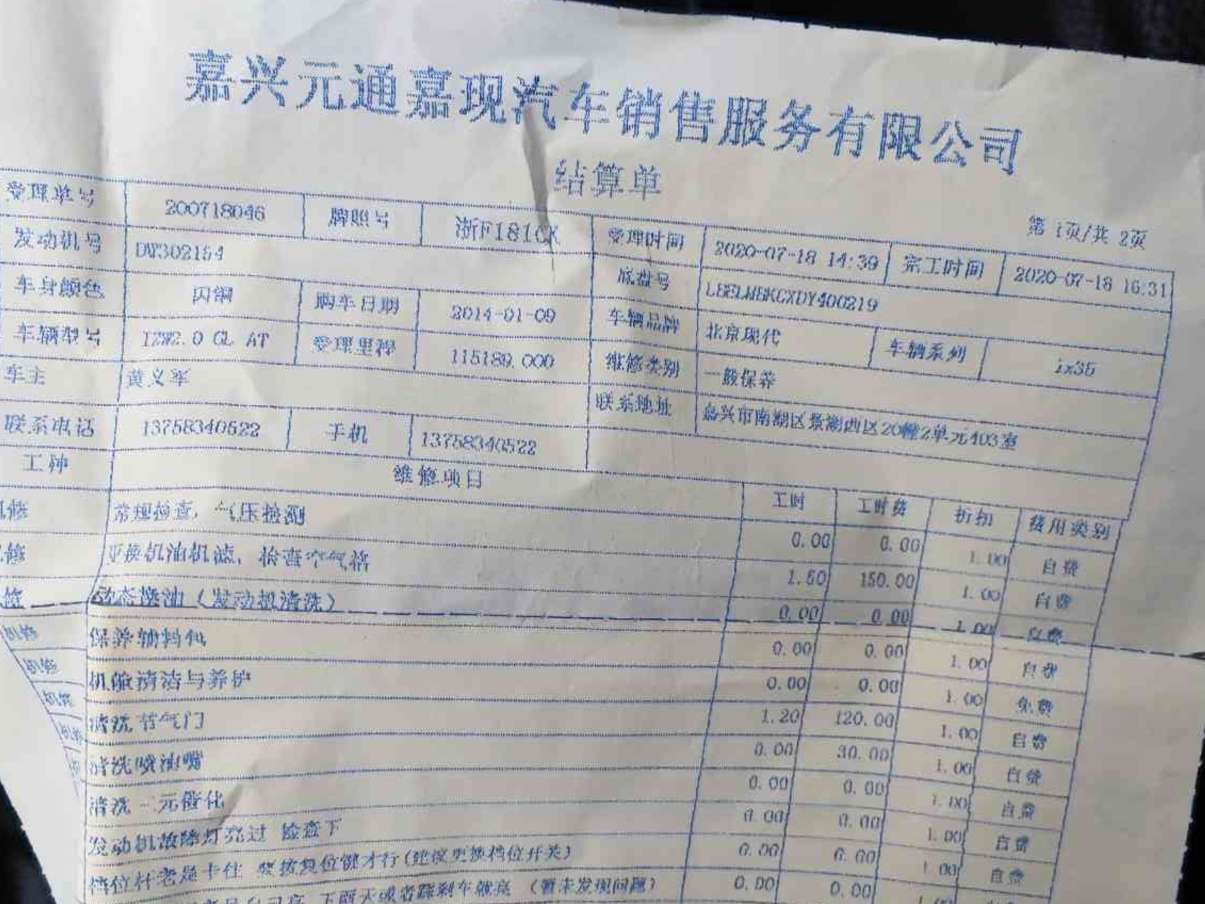 嘉兴元通嘉现汽车销售服务有限公司
结算单
第 1页/共 2页
受理单号 200718046 牌照号 浙F181CK 受理时间 2020-07-18 14:39 完工时间 2020-07-18 16:31
发动机号 DW302154 底盘号 LBELMBKCXDY400219
车身颜色 闪铜 购车日期 2014-01-09 车辆品牌 北京现代 车辆系列 ix35
车辆型号 GL AT 受理里程 115189.000 维修类别 一般保养
车主 黄义军 联系地址 嘉兴市南湖区景湖西区20幢2单元403室
联系电话 13758340522 手机 13758340522
工种 维修项目 工时 工时费 折扣 费用类别
机修 常规检查，气压检测 0.00 0.00 1.00 自费
机修 更换机油机滤，检查空气格 1.50 150.00 1.00 自费
机修 动态换油（发动机清洗） 0.00 0.00 1.00 自费
机修 保养辅料包 0.00 0.00 1.00 自费
机修 机舱清洁与养护 0.00 0.00 1.00 免费
机修 清洗节气门 1.20 120.00 1.00 自费
机修 清洗喷油嘴 0.00 30.00 1.00 自费
清洗三元催化 0.00 0.00 1.00 自费
发动机故障灯亮过 检查下 0.00 0.00 1.00 自费
档位杆老是卡住 要按复位键才行(建议更换档位开关) 0.00 0.00 1.00 自费
下雨天或者踩刹车就 （暂未发现问题） 0.00 0.00 1.00 自费